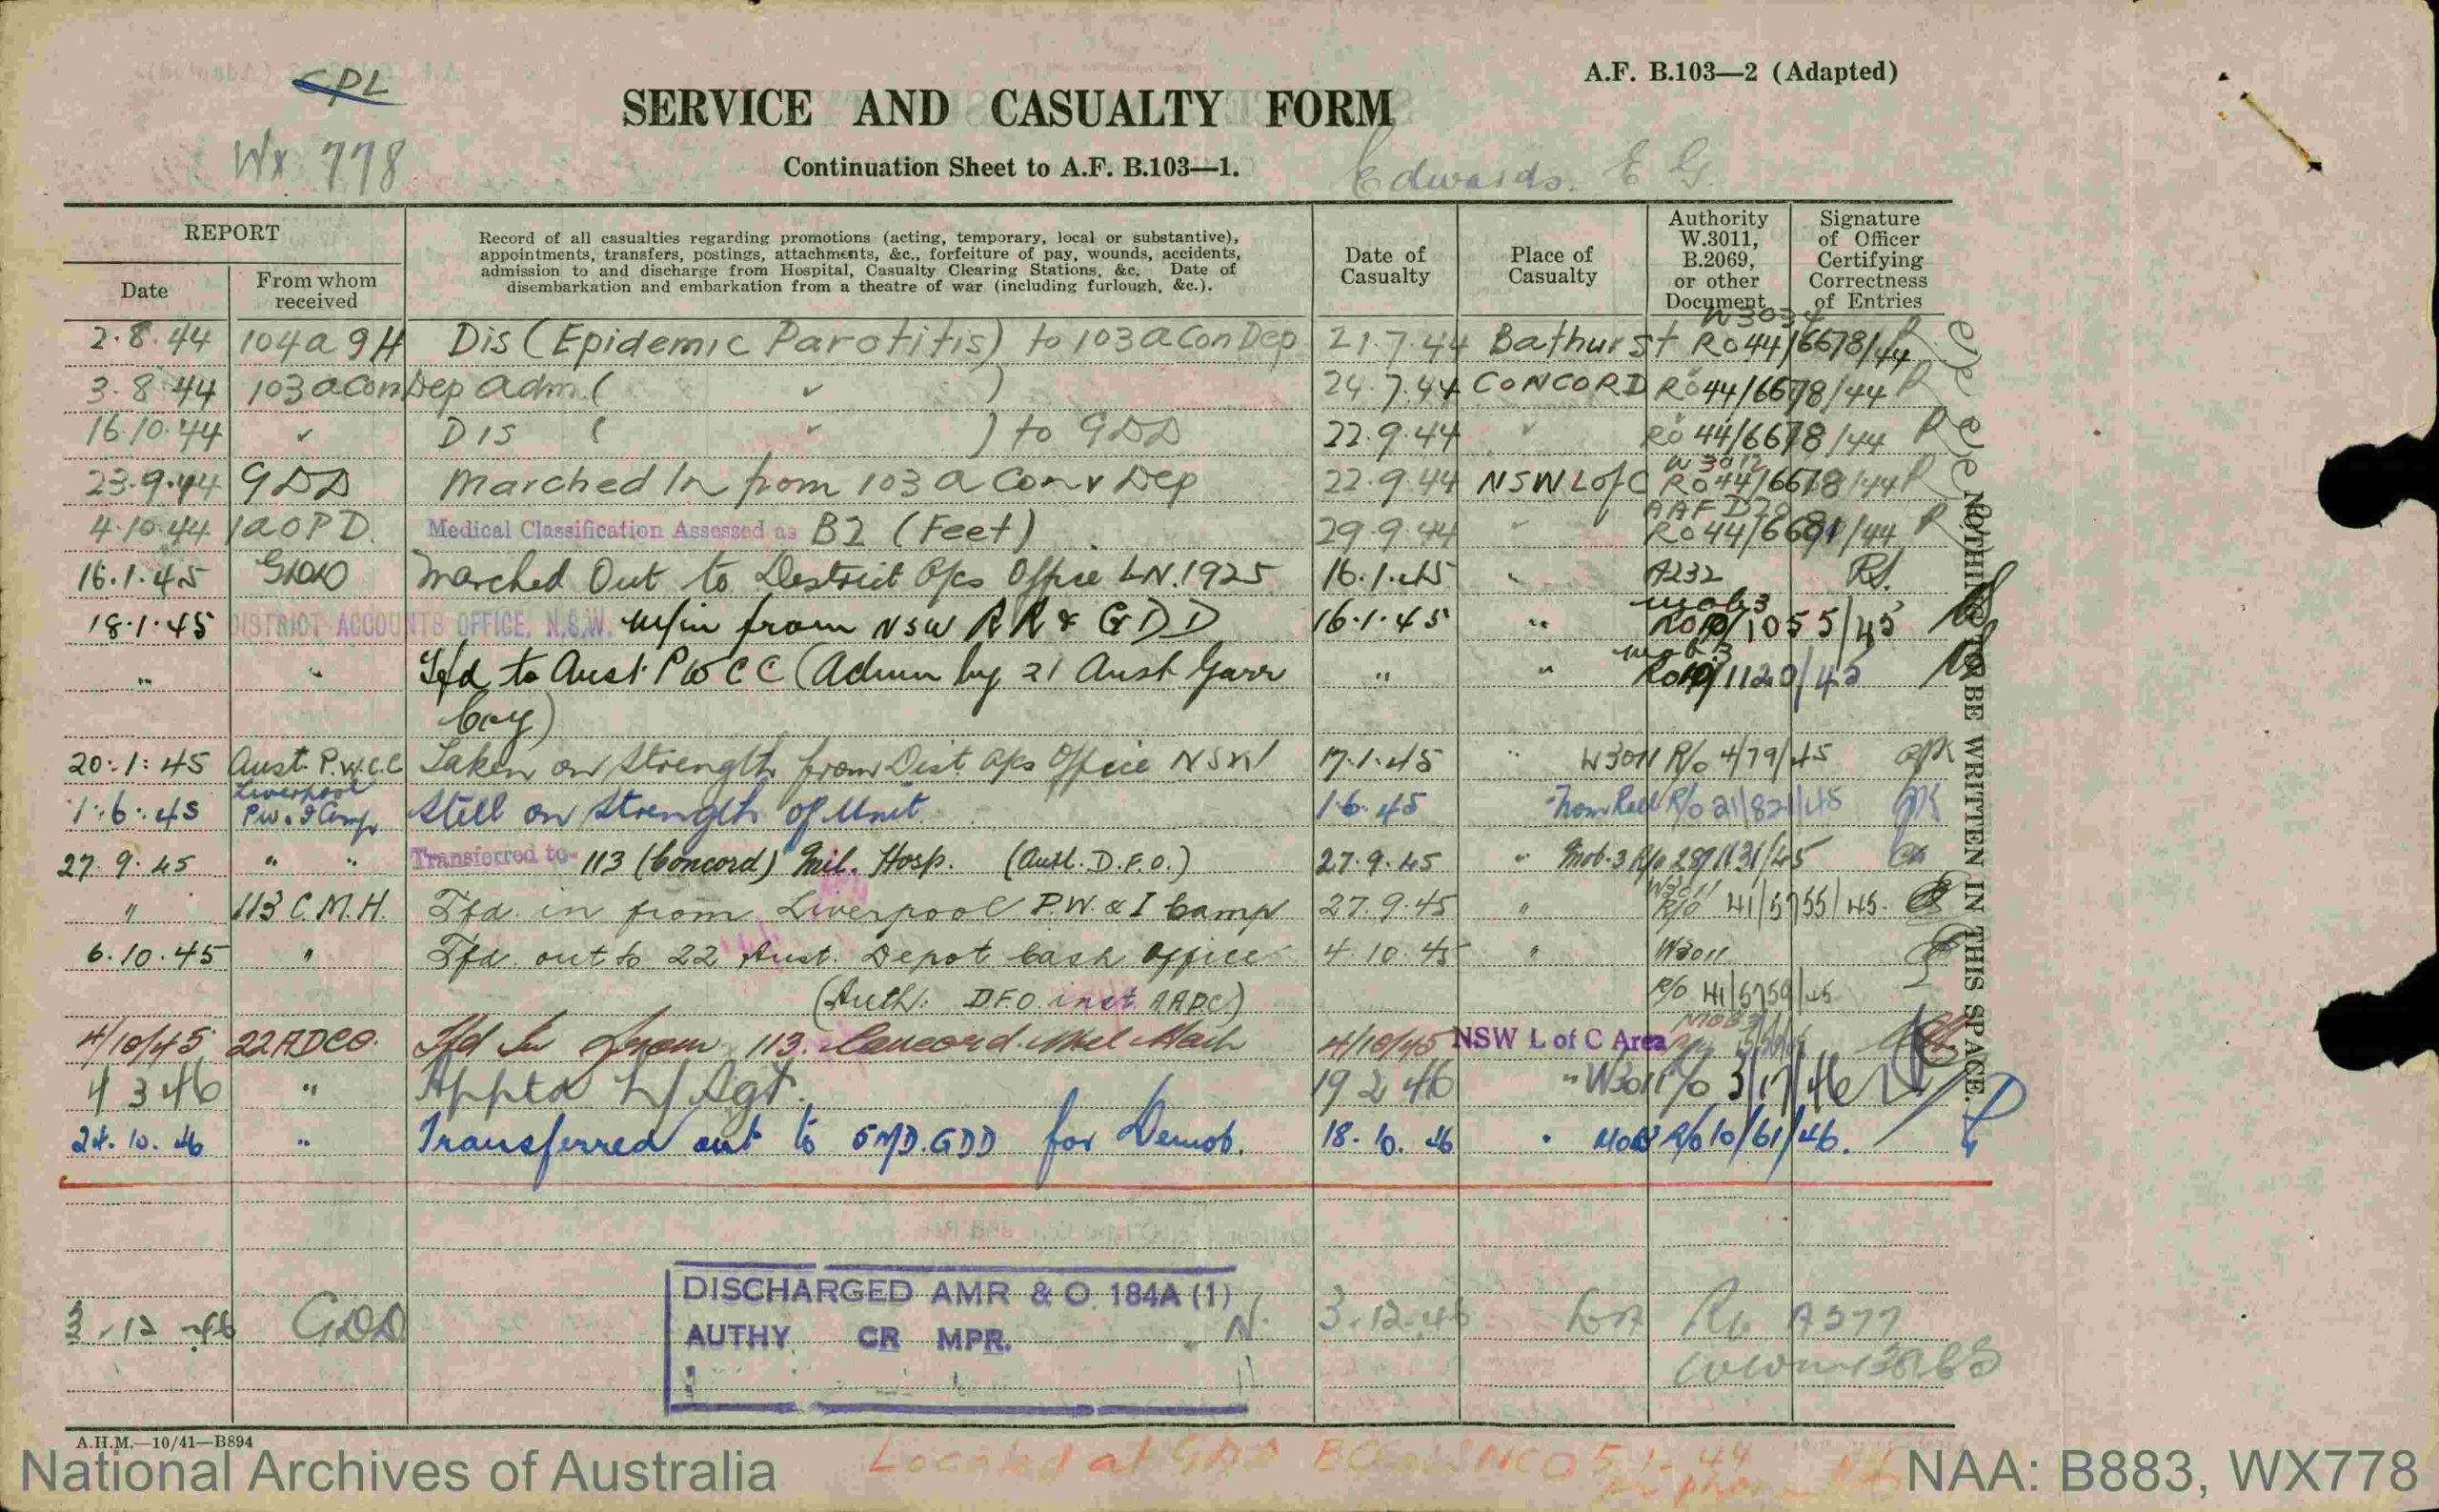 CPL
A.F. B.103—2 (Adapted)
SERVICE AND CASUALTY FORM
Wx 778
Continuation Sheet to A.F. B.103—1.
Edwards. E G.
REPORT
Date
From whom received
Record of all casualties regarding promotions (acting, temporary, local or substantive),
appointments, transfers, postings, attachments, &c., forfeiture of pay, wounds, accidents,
admission to and discharge from Hospital, Casualty Clearing Stations, &c. Date of
disembarkation and embarkation from a theatre of war (including furlough, &c.).
Date of Casualty
Place of Casualty
Authority W.3011, B.2069, or other Document
Signature of Officer Certifying Correctness of Entries
W3034
2.8.44 104 a g H Dis (Epidemic Parotitis) to 103 a Con Dep 21.7.44 Bathurst Ro44/6678/44
3.8.44 103 a Con Dep adm. ( " ) 24.7.44 CONCORD Ro 44/6678/44
16.10.44 " Dis ( " ) to GDD 22.9.44 " Ro 44/6678/44
W 3012
23.9.44 GDD Marched In from 103 a Conv Dep 22.9.44 NSW L of C Ro 44/6678/44
AAF D20
4.10.44 1 a O P D. Medical Classification Assessed as B2 (Feet) 29.9.44 " Ro 44/6681/44
16.1.45 GDD Marched Out to District A/cs Office LN.1925 16.1.45 " A232
Mob 3
18.1.45 DISTRICT ACCOUNTS OFFICE, N.S.W. M/in from NSW RR & GDD 16.1.45 " Ro 10/1055/45
Mob 3
" " Tfd to Aust P W C C (Admin by 21 Aust Garr " " Ro 10/1120/45
Coy)
20.1.45 Aust. P.W.C.C Taken on Strength from Dist A/cs Office NSW 17.1.45 " W3011 R/o 4/79/45
1.6.45 Liverpool P.W. & I Camp Still on Strength of Unit 1.6.45 Nom Roll R/o 21/821/45
27.9.45 " " Transferred to 113 (Concord) Mil. Hosp. (Auth. D.F.O.) 27.9.45 " Mob. 3 R/o
" 113 C.M.H. Tfd in from Liverpool P.W. & I Camp 27.9.45 " W3011 R/O 41/5755/45
6.10.45 " Tfd out to 22 Aust. Depot Cash Office 4.10.45 " W3011
(Auth: D.F.O. inst AAPC) R/O 41/5759/45
4/10/45 22 ADCO. Tfd In from 113. Concord. 4/10/45 NSW L of C Area MOB3
4 3 46 " Appted L/Sgt. 19 2 46 " W3011 R/o 3/17/46
24.10.46 " Transferred out to 5 M.D. GDD for Demob. 18.10.46 " MOB3 R/o 10/61/46.
NOTHING TO BE WRITTEN IN THIS SPACE.
DISCHARGED AMR & O. 184A (1)
3.12.46 GDD AUTHY CR MPR. 3.12.46 Ro A277
A.H.M.—10/41—B894
Located at GDD 5.1.44
National Archives of Australia
NAA: B883, WX778